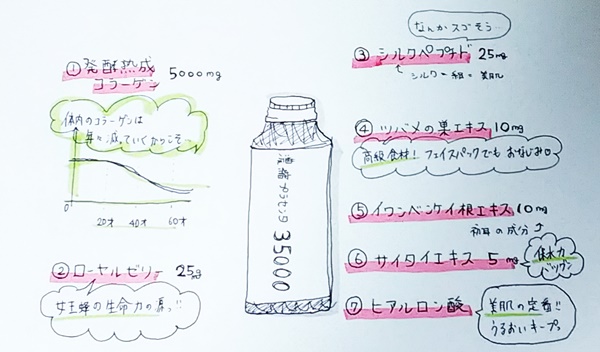 ① 発酵熟成
コラーゲン 5000mg
体内のコラーゲンは
年々減っていくからこそ…
0 20才 40才 60才
② ローヤルゼリー 25mg
女王蜂の生命力の源っ!!
濃縮プラセンタ
35000
なんかスゴそう…
③ シルクペプチド 25mg
シルク=絹=美肌
④ ツバメの巣エキス 10mg
高級食材! フェイスパックでもおなじみ
⑤ イワンベンケイ根エキス 10mg
初耳の成分
⑥ サイタイエキス 5mg
保水力
バツグン
⑦ ヒアルロン酸
美肌の定番!!
うるおいキープっ